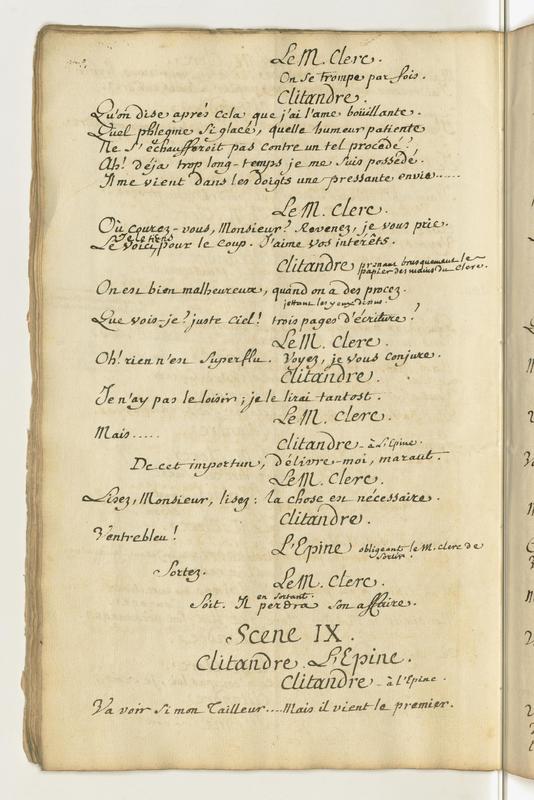 Le M. Clerc.
On se trompe par fois.
Clitandre.
Qu'on dise aprés cela que j'ai l'ame boüillante.
Quel phlegme si glacé, quelle humeur patiente
Ne s'échaufferoit pas contre un tel procedé?
Ah! déja trop long-temps je me suis possedé.
Il me vient dans les doigts une pressante envie......
Le M. Clerc.
Où courez-vous, Monsieur? Revenez, je vous prie.
Je le tiens
Le voici, pour le coup. J'aime vos interêts.
Clitandre prenant brusquement le
papier des mains du Clerc.
On est bien malheureux, quand on a des procez.
jettant les yeux dessus.
Que vois-je? juste Ciel! trois pages d'écriture!
Le M. Clerc.
Oh! rien n'est superflu. Voyez, je vous conjure.
Clitandre.
Je n'ay pas le loisir; je le lirai tantost.
Le M. Clerc.
Mais.....
Clitandre - à L'Epine.
De cet importun, délivre-moi, maraut.
Le M. Clerc.
Lisez, Monsieur, lisez: la chose est nécessaire.
Clitandre.
Ventrebleu!
L'Epine obligeant le M. Clerc de
sortir.
Sortez.
Le M. Clerc.
en sortant.
Soit. Il perdra son affaire.
Scene IX.
Clitandre. L'Epine.
Clitandre - à l'Epine.
Va voir si mon Tailleur.... Mais il vient le premier.